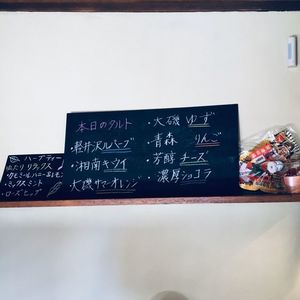 ハーブティー
リラックス
・カモミールハニー&レモン
・ミックスミント
・ローズヒップ
本日のタルト
・軽井沢ルバーブ
・湘南キウイ
・大磯サマーオレンジ
・大磯 ゆず
・青森 りんご
・芳醇 チーズ
・濃厚ショコラ